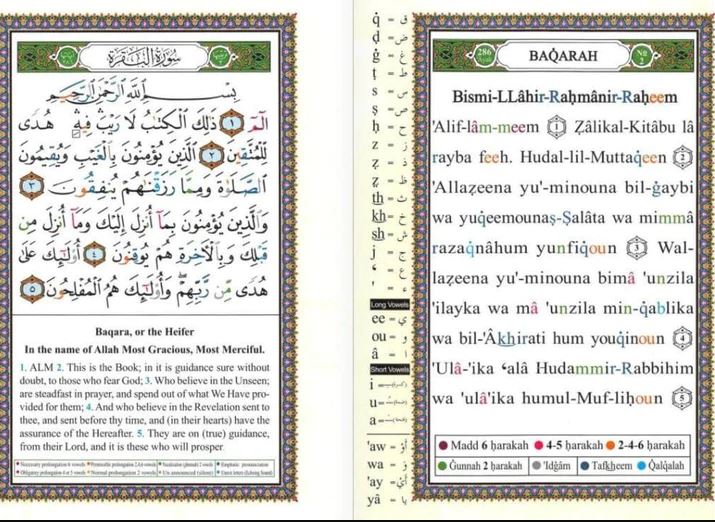 سُورَةُ الْبَقَرَةِ
بِسْمِ اللَّهِ الرَّحْمَٰنِ الرَّحِيمِ
الٓمٓ ١ ذَٰلِكَ الْكِتَٰبُ لَا رَيْبَ ۛ فِيهِ ۛ هُدًى
لِلْمُتَّقِينَ ٢ الَّذِينَ يُؤْمِنُونَ بِالْغَيْبِ وَيُقِيمُونَ
الصَّلَوٰةَ وَمِمَّا رَزَقْنَٰهُمْ يُنفِقُونَ ٣
وَالَّذِينَ يُؤْمِنُونَ بِمَآ أُنزِلَ إِلَيْكَ وَمَآ أُنزِلَ مِن
قَبْلِكَ وَبِالْآخِرَةِ هُمْ يُوقِنُونَ ٤ أُو۟لَٰٓئِكَ عَلَىٰ
هُدًى مِّن رَّبِّهِمْ ۖ وَأُو۟لَٰٓئِكَ هُمُ الْمُفْلِحُونَ ٥
Baqara, or the Heifer
In the name of Allah Most Gracious, Most Merciful.
1. ALM 2. This is the Book; in it is guidance sure without
doubt, to those who fear God; 3. Who believe in the Unseen;
are steadfast in prayer, and spend out of what We have Pro-
vided for them; 4. And who believe in the Revelation sent to
thee, and sent before thy time, and (in their hearts) have the
assurance of the Hereafter. 5. They are on (true) guidance,
from their Lord, and it is these who will prosper.
q̇ - ق
ḍ - ض
ġ - غ
ṭ - ط
s - س
ṣ - ص
ḥ - ح
z - ز
ẓ - ذ
ẓ - ظ
th - ث
kh - خ
sh - ش
j - ج
‘ - ع
' - ء
Long Vowels
ee - ي
ou - و
â - ا
Short Vowels
i
u
a
'aw - أو
wa - و
'ay - أي
yâ - يا
286 Ayah
BAQ̇ARAH
No 2
Bismi-LLâhir-Raḥmânir-Raḥeem
'Alif-lâm-meem 1 Ẓâlikal-Kitâbu lâ
rayba feeh. Hudal-lil-Muttaq̇een 2
'Allaẓeena yu'-minouna bil-ġaybi
wa yuq̇eemounaṣ-Ṣalâta wa mimmâ
razaq̇nâhum yunfiq̇oun 3 Wal-
laẓeena yu'-minouna bimâ 'unzila
'ilayka wa mâ 'unzila min-q̇ablika
wa bil-'Âkhirati hum youq̇inoun 4
'Ulâ-'ika ‘alâ Hudammir-Rabbihim
wa 'ulâ'ika humul-Muf-liḥoun 5
Madd 6 ḥarakah 4-5 ḥarakah 2-4-6 ḥarakah
Ġunnah 2 ḥarakah 'Idġâm Tafkheem Q̇alq̇alah